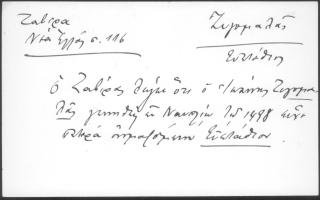 Ζαβίρα
Νέα Ἑλλάς σ. 116
Ζυγομαλᾶς
Εὐστάθιος
Ὁ Ζαβίρας λέγει ὅτι ὁ Ἰωάννης Ζυγομα
λᾶς γεννηθεὶς ἐν Ναυπλίῳ τῷ 1498
πατέρα ὀνομαζόμενον Εὐστάθιον.